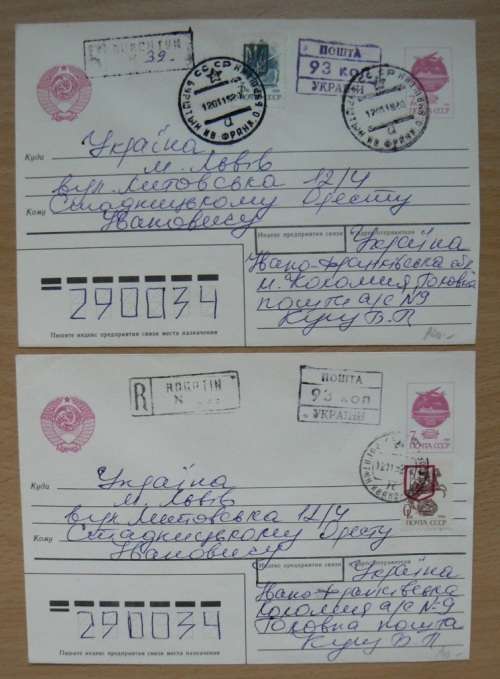 39
ПОШТА
93 коп
УКРАЇНИ
ПОЧТА СССР
Куда
Україна
м. Львів
вул. Литовська 12/4
Кому
Складницькому Оресту
Івановичу
Индекс предприятия связи
Україна
Івано-Франківська обл
м. Коломия Головна
пошта а/с №9
Куку Б.П
290034
Пишите индекс предприятия связи места назначения
R ROGATIN
N
ПОШТА
93 коп
УКРАЇНИ
7
ПОЧТА СССР
ПОЧТА СССР
Куда
Україна
м. Львів
вул. Литовська 12/4
Кому
Складницькому Оресту
Івановичу
Индекс предприятия связи
Україна
Івано-Франківська
Коломия а/с №9
Головна пошта
Куку Б.П
290034
Пишите индекс предприятия связи места назначения